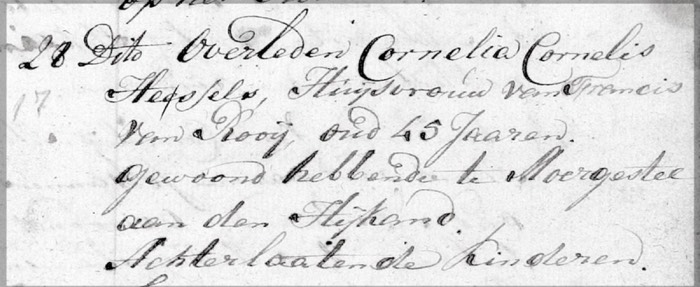 28 Dito Overleden Cornelia Cornelis
17
Hessels, Huijsvrouw van Francis
van Rooij, oud 45 Jaaren.
Gewoond hebbende te Moergestel
aan den Heijkand.
Achterlaatende Kinderen.